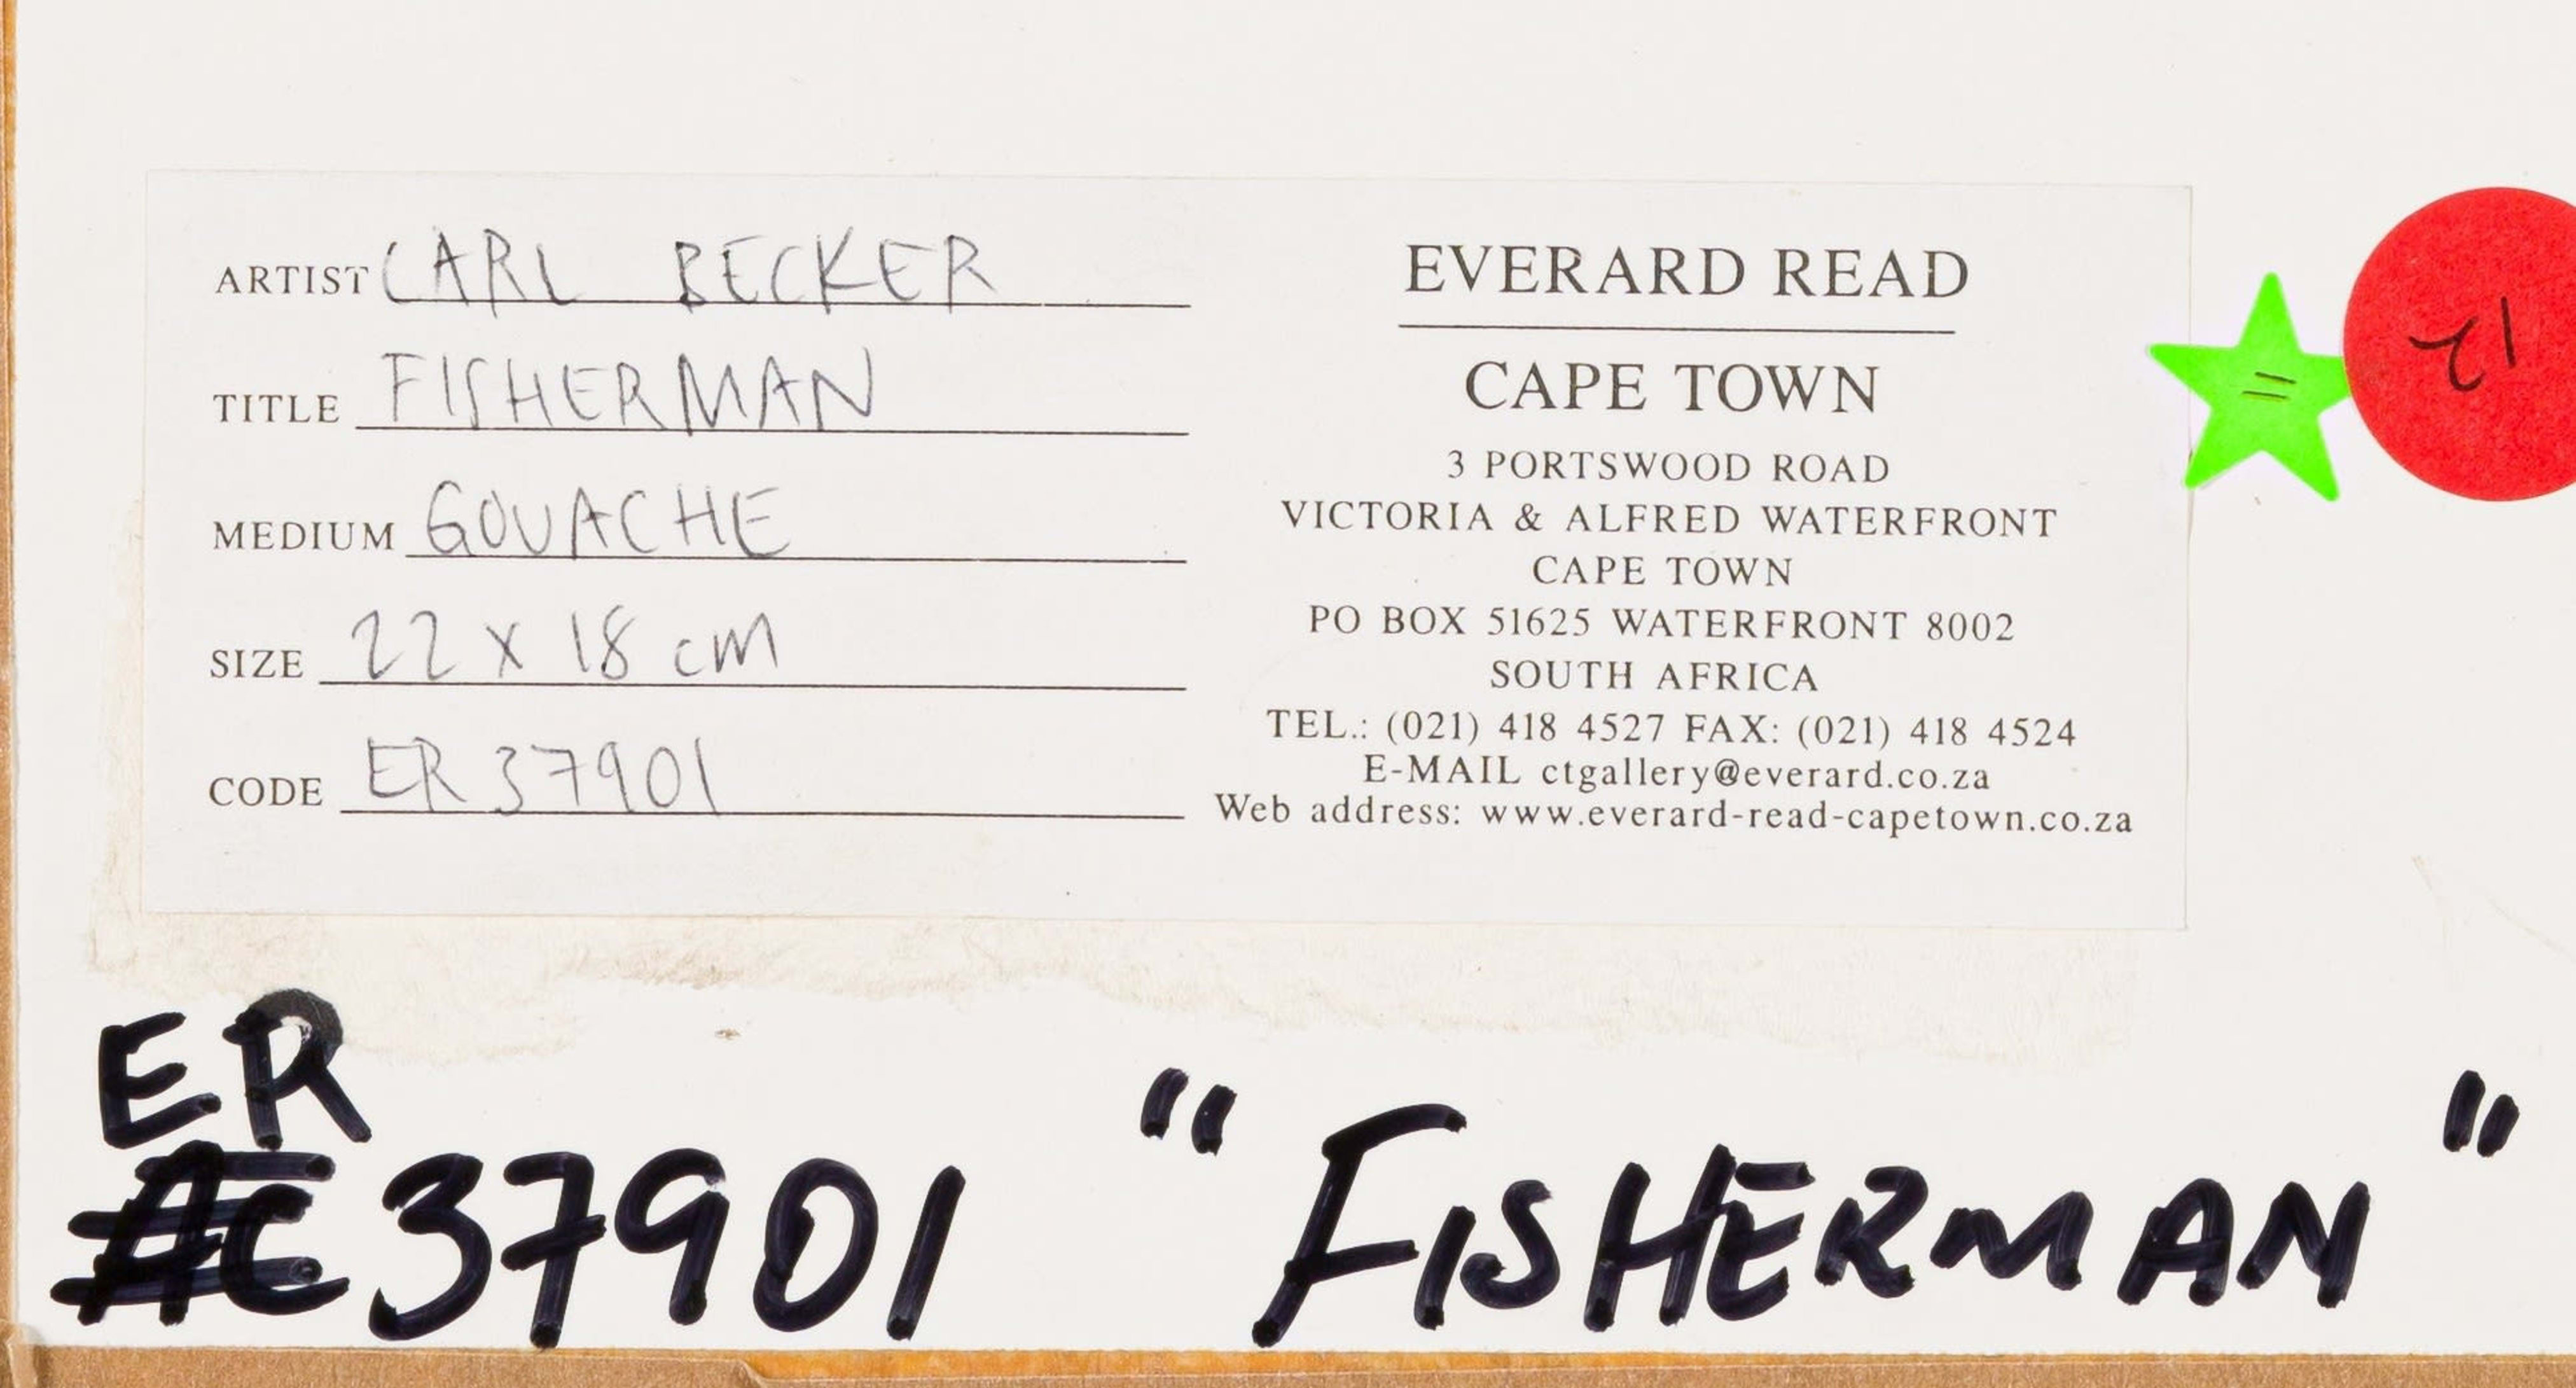 ARTIST CARL BECKER
TITLE FISHERMAN
MEDIUM GOUACHE
SIZE 22 x 18 cm
CODE ER 37901
EVERARD READ
CAPE TOWN
3 PORTSWOOD ROAD
VICTORIA & ALFRED WATERFRONT
CAPE TOWN
PO BOX 51625 WATERFRONT 8002
SOUTH AFRICA
TEL.: (021) 418 4527 FAX: (021) 418 4524
E-MAIL ctgallery@everard.co.za
Web address: www.everard-read-capetown.co.za
ER
37901 "FISHERMAN"